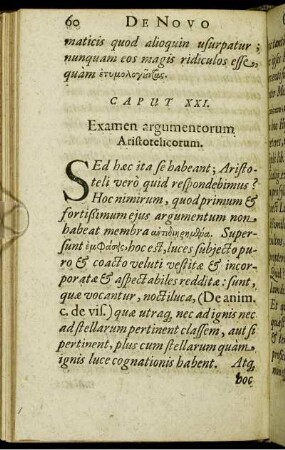 60 DE NOVO
maticis quod alioquin usurpatur;
nunquam eos magis ridiculos esse,
quàm ἐτυμολογώντας.
CAPUT XXI.
Examen argumentorum
Aristotelicorum.
SEd hæc ita se habeant; Aristo-
teli verò quid respondebimus?
Hoc nimirum, quod primum &
fortissimum ejus argumentum non
habeat membra ἀντιδιῃρημένα. Super-
sunt ἐμφάσεις, hoc est, luces subjecto pu-
ro & coacto veluti vestitæ & incor-
poratæ & aspectabiles redditæ: sunt,
quæ vocantur, noctiluca, (De anim.
c. de vis.) quæ utraq, nec ad ignis nec
ad stellarum pertinent classem, aut si
pertinent, plus cum stellarum quàm
ignis luce cognationis habent. Atq,
hoc